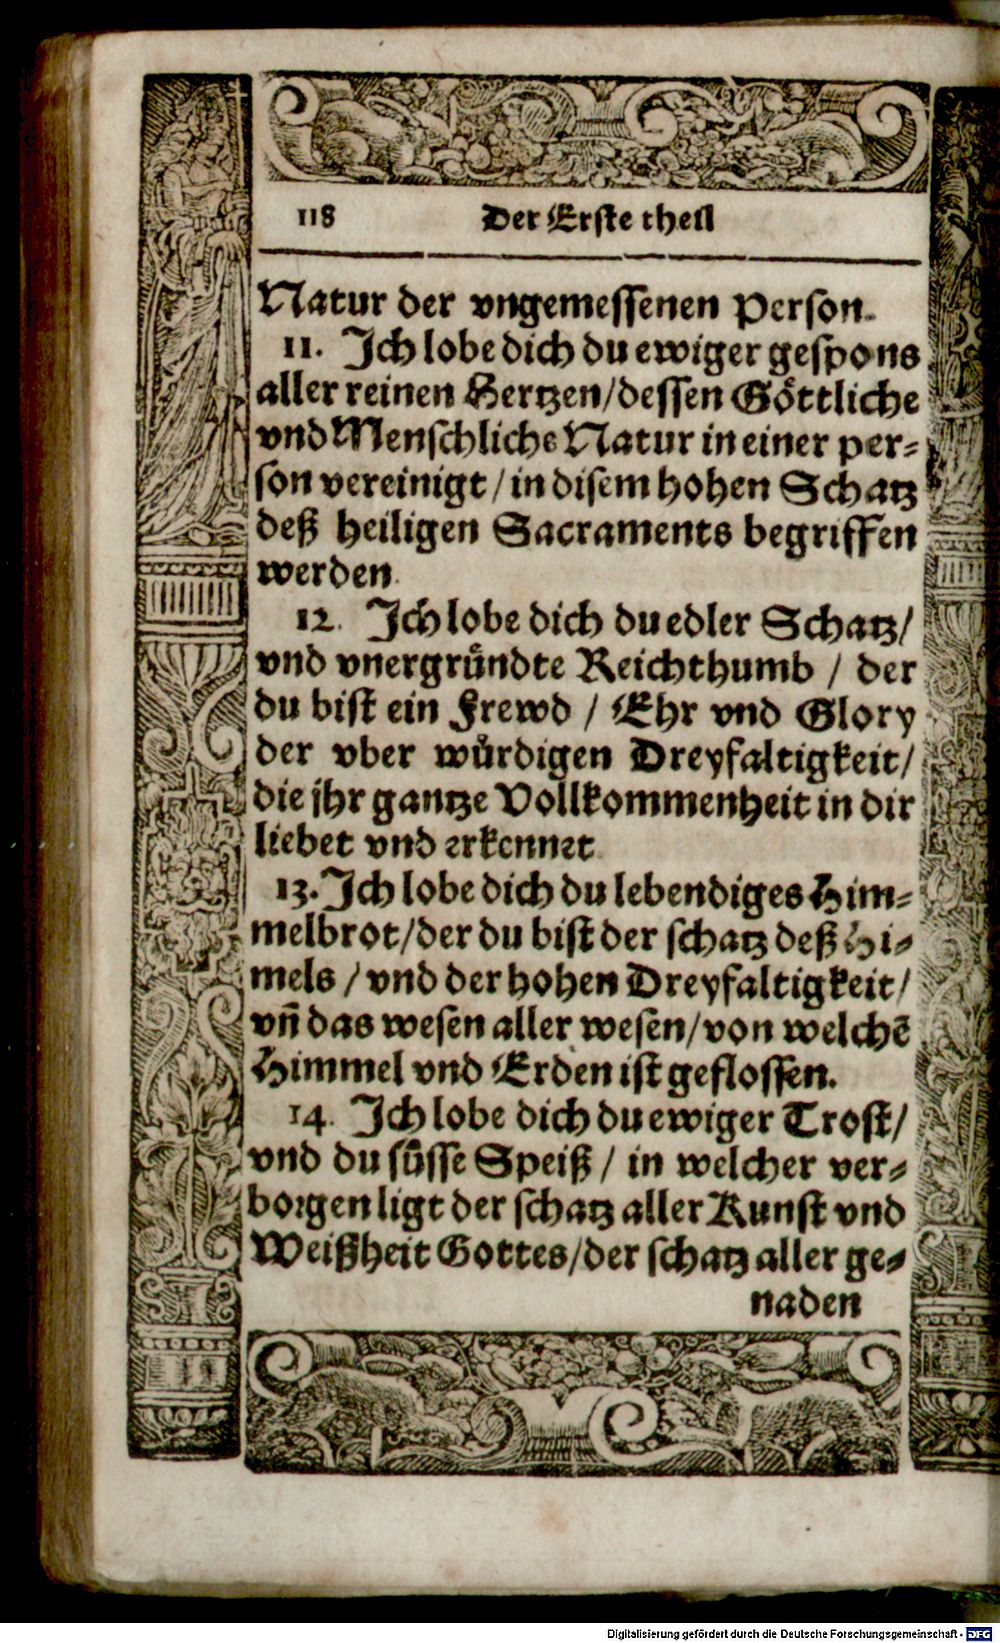 118 Der Erste theil
Natur der vngemessenen Person.
11. Ich lobe dich du ewiger gespons
aller reinen Hertzen/dessen Göttliche
vnd Menschliche Natur in einer per-
son vereinigt/in disem hohen Schatz
deß heiligen Sacraments begriffen
werden.
12. Ich lobe dich du edler Schatz/
vnd vnergründte Reichthumb / der
du bist ein Frewd / Ehr vnd Glory
der vber würdigen Dreyfaltigkeit/
die jhr gantze Vollkommenheit in dir
liebet vnd erkennet.
13. Ich lobe dich du lebendiges Him-
melbrot/der du bist der schatz deß Hi-
mels / vnd der hohen Dreyfaltigkeit/
vñ das wesen aller wesen/von welchē
Himmel vnd Erden ist geflossen.
14. Ich lobe dich du ewiger Trost/
vnd du süsse Speiß / in welcher ver-
borgen ligt der schatz aller Kunst vnd
Weißheit Gottes/der schatz aller ge-
naden
Digitalisierung gefördert durch die Deutsche Forschungsgemeinschaft - DFG